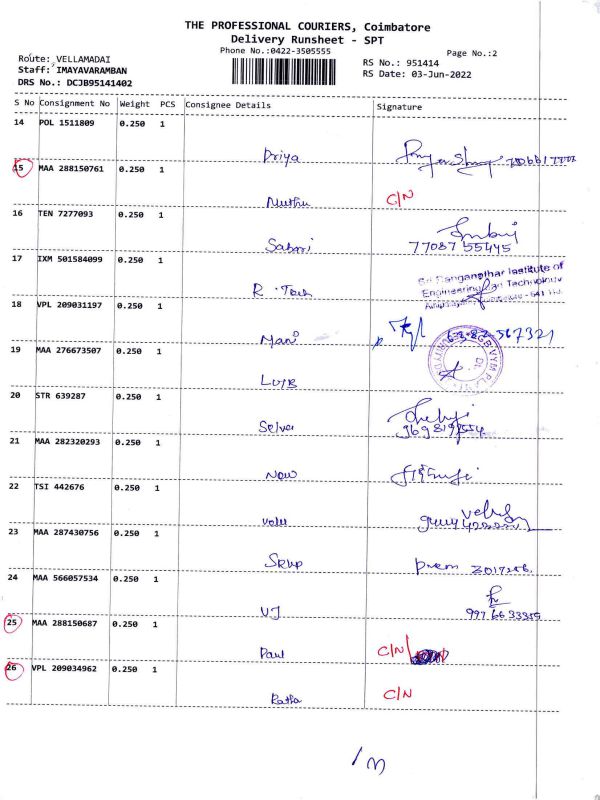 THE PROFESSIONAL COURIERS, Coimbatore
Delivery Runsheet - SPT
Phone No.:0422-3505555
Page No.:2
Route: VELLAMADAI
Staff: IMAYAVARAMBAN
DRS No.: DCJB95141402
RS No.: 951414
RS Date: 03-Jun-2022
S No Consignment No Weight PCS Consignee Details Signature
14 POL 1511809 0.250 1
Priya
15 MAA 288150761 0.250 1
Muthu C/N
16 TEN 7277093 0.250 1
Sabari 77087 55445
17 IXM 501584099 0.250 1
R. Tech
Sri Ranganathar Institute of
Engineering and Technology
18 VPL 209031197 0.250 1
Mani
19 MAA 276673507 0.250 1
LGB
20 STR 639287 0.250 1
Selva
21 MAA 282320293 0.250 1
NOW
22 TSI 442676 0.250 1
Velu
23 MAA 287430756 0.250 1
24 MAA 566057534 0.250 1
VJ
25 MAA 288150687 0.250 1
Paul C/N
26 VPL 209034962 0.250 1
Ratha C/N